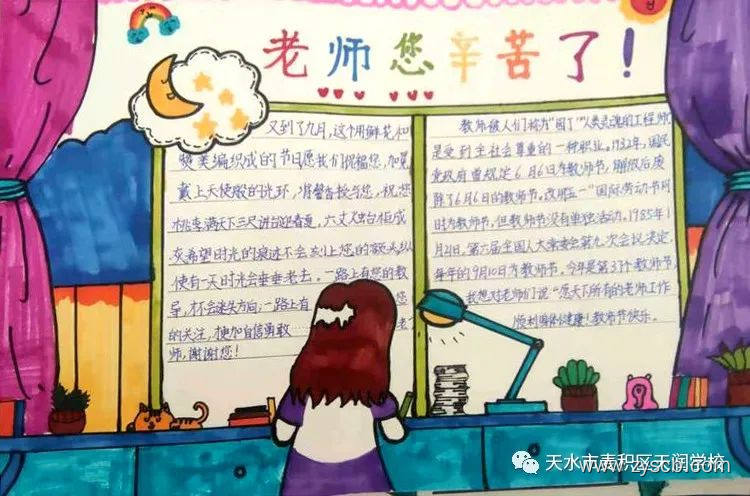 老师您辛苦了！
又到了九月，这个用鲜花和
赞美编织成的节日愿我们祝福您，加冕
戴上天使般的光环，将馨香投与您，祝您
桃李满天下三尺讲台迎春夏，六丈
希望时光的痕迹不会刻上您的额头纵
使有一天时光会垂垂老去。一路上有您的教
导，才不会迷失方向；一路上有 您
的关注，更加自信勇敢 老
师，谢谢您！
教师被人们称为"园丁""人类灵魂的工程师
是受到全社会尊重的一种职业。1932年，国民
党政府曾规定6月6日为教师节，解放后废
除了6月6日的教师节，改用五一"国际劳动节同
时为教师节，但教师节没有单独活动。1985年1
月21日，第六届全国人大常委会第九次会议决定，
每年的9月10日为教师节，今年是第37个教师节
我想对老师们说"愿天下所有的老师工作
顺利身体健康！教师节快乐。
天水市麦积区天润学校